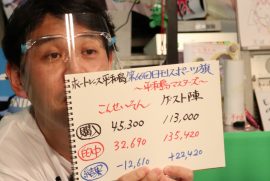 ボートレース平和島 第66回日刊スポーツ旗
～平和島マスターズ～
こんせいくん ゲスト陣
購入 45,300 113,000
的中 32,690 135,420
結果 -12,610 +22,420